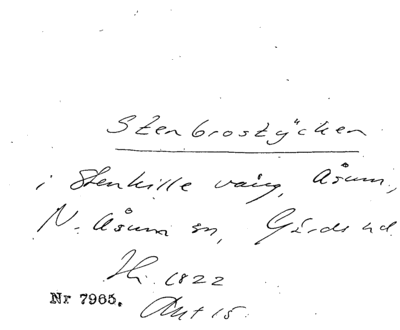 Stenbrostycken
i Stenkille vång, Åsum,
N. Åsum sn, Gärds hd
Hi. 1822
Nr 7965. Akt 15.